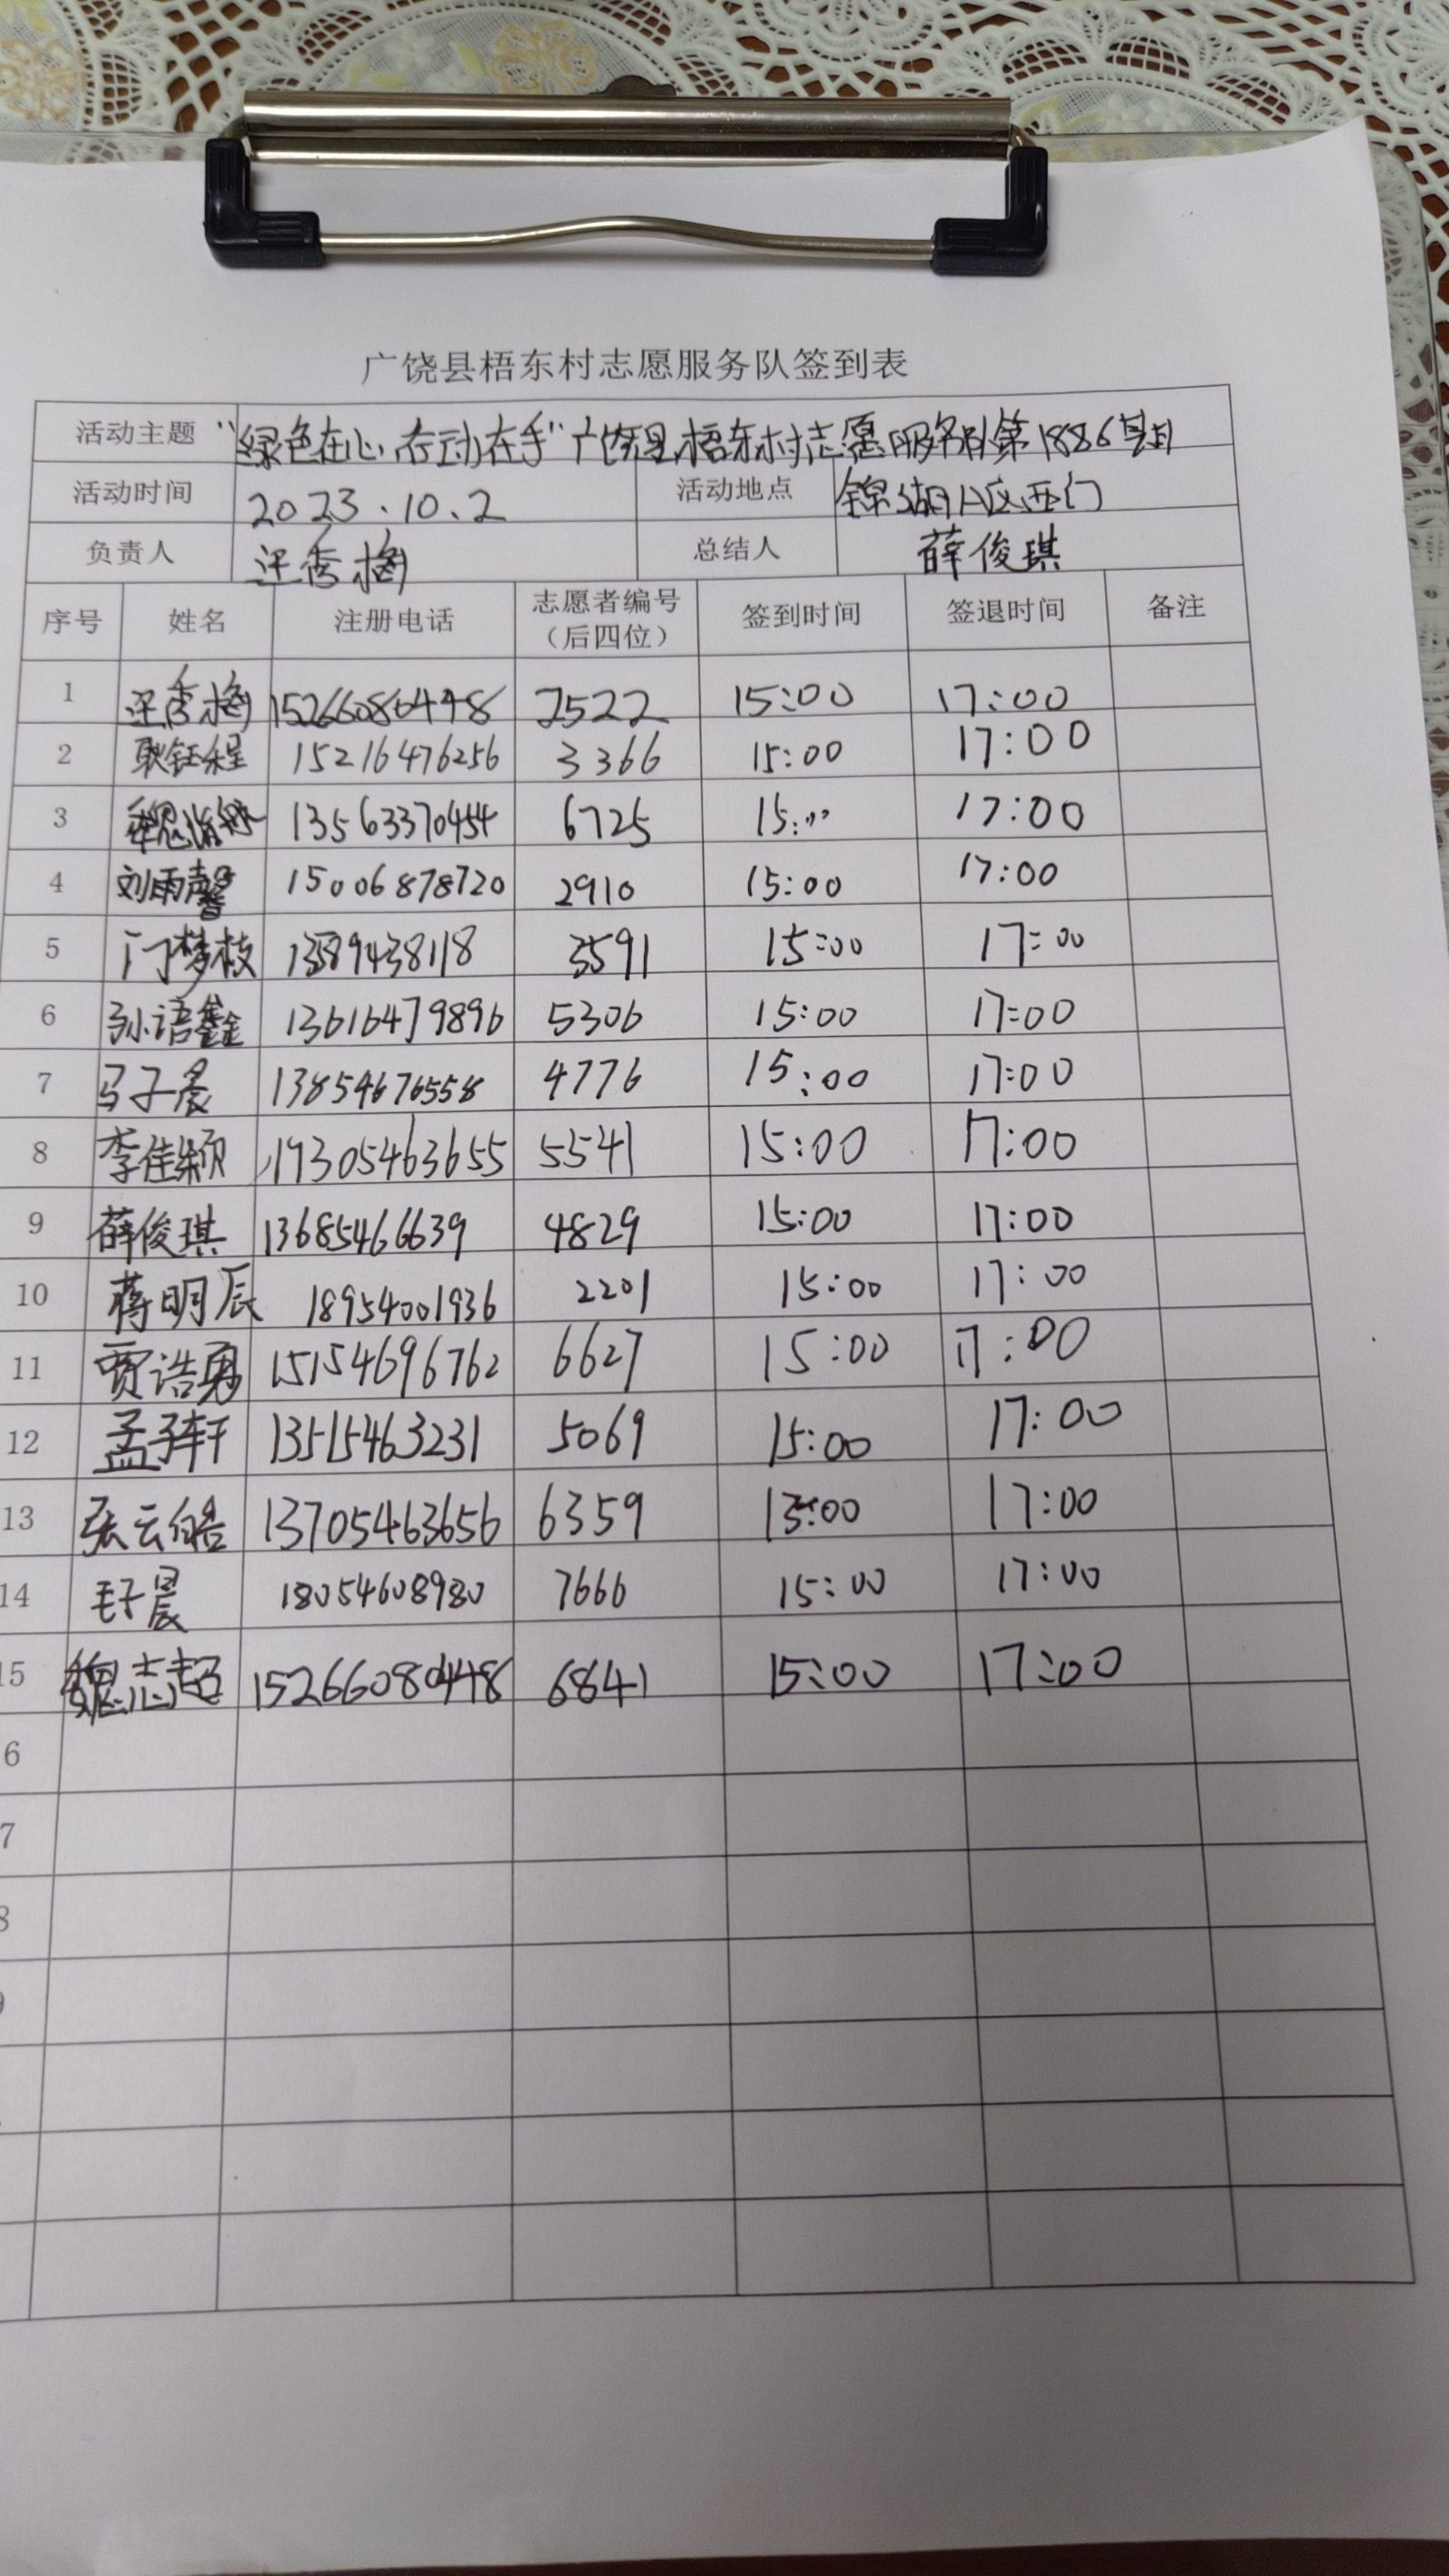 广饶县梧东村志愿服务队签到表
活动主题 "绿色在心 行动在手" 广饶县梧东村志愿服务队第1886期
活动时间 2023.10.2 活动地点 锦湖小区西门
负责人 汪秀梅 总结人 薛俊琪
序号 姓名 注册电话 志愿者编号（后四位） 签到时间 签退时间 备注
1 汪秀梅 15266080448 2522 15:00 17:00
2 耿钰程 15216476256 3366 15:00 17:00
3 魏 13563370454 6725 15:00 17:00
4 刘雨馨 15006878720 2910 15:00 17:00
5 门梦枝 13589438118 3591 15:00 17:00
6 孙语鑫 13616479896 5306 15:00 17:00
7 马子晨 13854676558 4776 15:00 17:00
8 李佳颖 17305463655 5541 15:00 17:00
9 薛俊琪 13685466639 4829 15:00 17:00
10 蒋明辰 18954001936 2201 15:00 17:00
11 贾浩勇 15154696762 6627 15:00 17:00
12 孟子轩 13515463231 5069 15:00 17:00
13 张云皓 13705463656 6359 15:00 17:00
14 毛子晨 18054608980 7666 15:00 17:00
15 魏志超 15266080448 6841 15:00 17:00
6
7
8
9